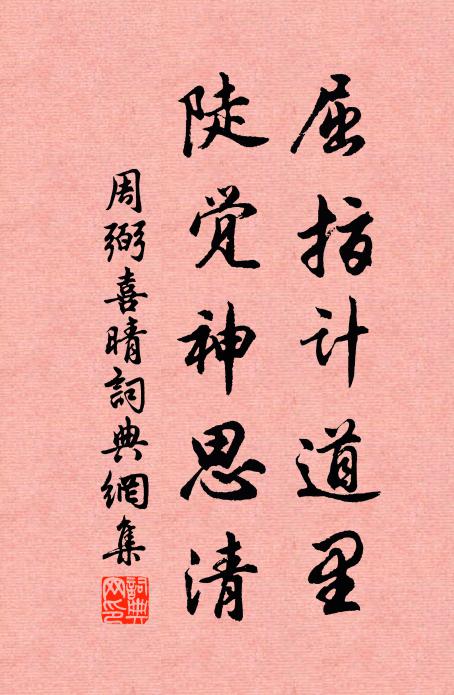 屈指计道里
陡覚神思清
周弼喜晴詞典網集
詞典
网印